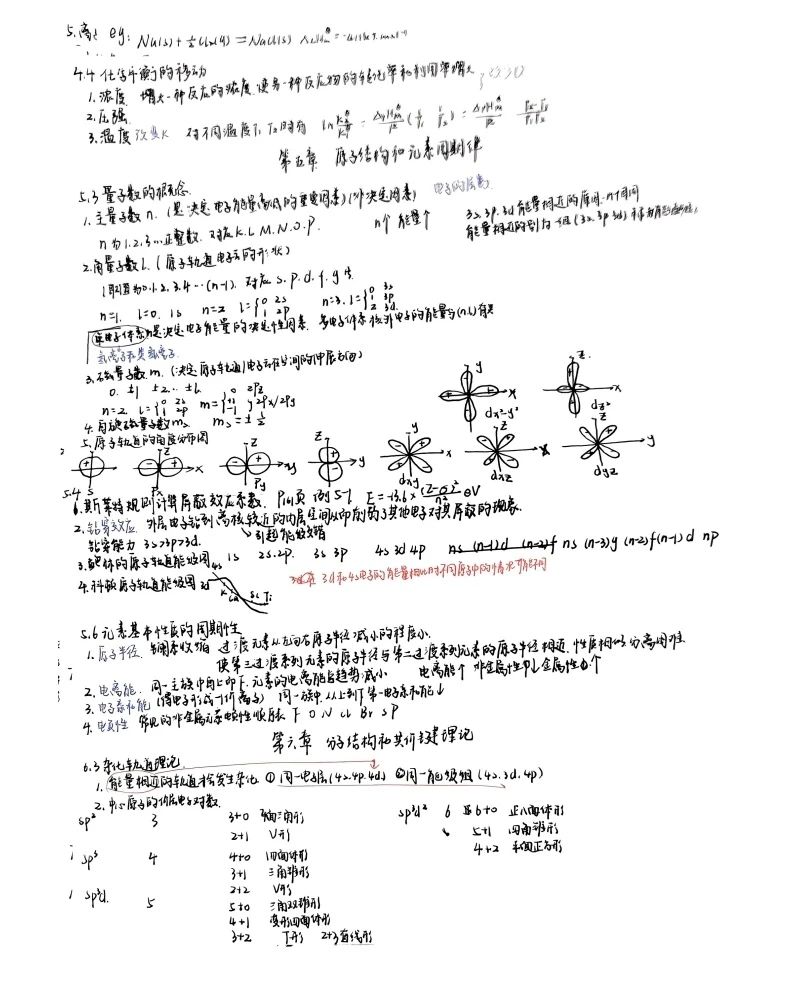 eg: Na(s) + ½Cl₂(g) = NaCl(s)
4.4 化学平衡的移动
1. 浓度 增大一种反应的浓度 使另一种反应物的转化率和利用率增大
2. 压强
3. 温度 改变K 对不同温度T₁ T₂时有
第五章 原子结构和元素周期律
5.3 量子数的概念
1. 主量子数 n. (是决定电子能量高低的重要因素)(外决定因素) 电子的层数
n为1.2.3…正整数. 对应K.L.M.N.O.P. n个能量个
3s.3p.3d能量相近的原间. n相同
能量相近的划为一组(3s 3p 3d)
2. 角量子数 l. (原子轨道电子云的形状)
l取值为0.1.2.3.4…(n-1). 对应 s.p.d.f.g
n=1. l=0. 1s n=2 l={0 2s 1 2p n=3. l={0 3s 1 3p 2 3d
单电子体系n是决定电子能量的决定性因素. 多电子体系核外电子的能量与(n.l)有关
氢离子和类氢离子
3. 磁量子数 m. (决定原子轨道/电子云在空间的伸展方向)
0. ±1 ±2… ±l. 0 2pz
n=2 l={0 2s 1 2p m={+1 -1 } 2px/2py
4. 自旋磁量子数 ms ms = ±½
5. 原子轨道的角度分布图
y x dx²-y² z. x dz²
s Px x z Py y z y y x dxy z x dxz z y dyz
5.4
1. 斯莱特规则计算屏蔽效应系数. 例5-1 E = -13.6 × (Z-σ)²/n² eV
2. 钻穿效应 外层电子钻到离核较近的内层空间从而削弱了其他电子对其屏蔽的现象.
钻穿能力 3s>3p>3d. 引起能级交错
3. 鲍林的原子轨道能级图 1s 2s.2p. 3s 3p 4s 3d 4p ns (n-1)d (n-2)f ns (n-3)g (n-2)f (n-1)d np
4. 科顿原子轨道能级图 4s 3d K Ca Sc Ti
3d和4s电子的能量相比对不同原子中的情况可能不同
5.6 元素基本性质的周期性
1. 原子半径. 镧系收缩 过渡元素从左向右原子半径减小的程度小.
使第三过渡系列元素的原子半径与第二过渡系列元素的原子半径相近. 性质相似 分离困难
2. 电离能. 同一主族中自上而下. 元素的电离能趋势减小. 电离能↑ 非金属性↑ 金属性↓
3. 电子亲和能 (得电子形成-1价离子) 同一族中 从上到下第一电子亲和能↓
4. 电负性 常见的非金属元素电负性顺序表 F O N Cl Br S P
第六章 分子结构和共价键理论
6.3 杂化轨道理论
1. 能量相近的轨道才会发生杂化 ①同一电子层(4s.4p.4d) ②同一能级组(4s.3d.4p)
2. 中心原子的价层电子对数.
sp² 3 3+0 平面三角形
2+1 V形
sp³ 4 4+0 四面体形
3+1 三角锥形
2+2 V形
sp³d. 5 5+0 三角双锥形
4+1 变形四面体形
3+2 T形 2+3 直线形
sp³d² 6 6+0 正八面体形
5+1 四角锥形
4+2 平面正方形